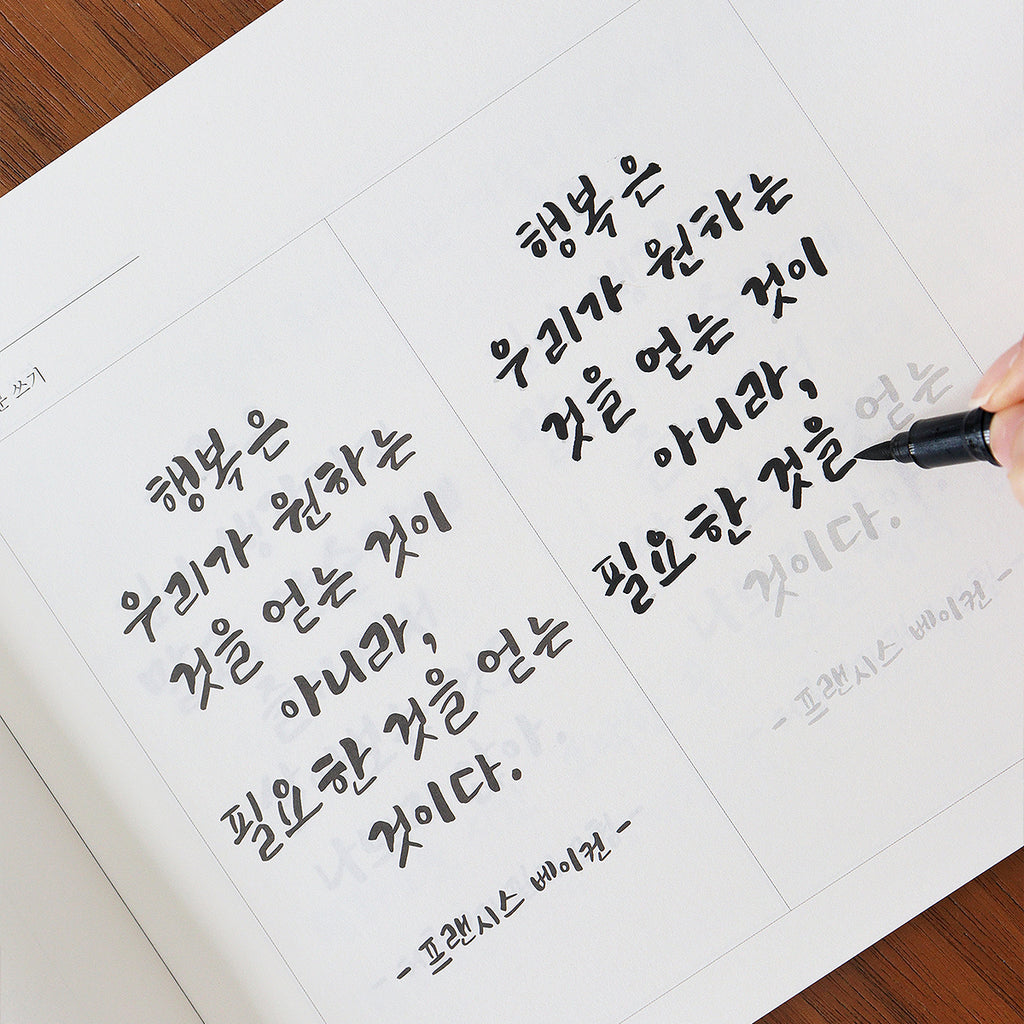 쓰기
행복은
우리가 원하는
것을 얻는 것이
아니라,
필요한 것을 얻는
것이다.
- 프랜시스 베이컨 -
행복은
우리가 원하는
것을 얻는 것이
아니라,
필요한 것을 얻는
것이다.
- 프랜시스 베이컨 -